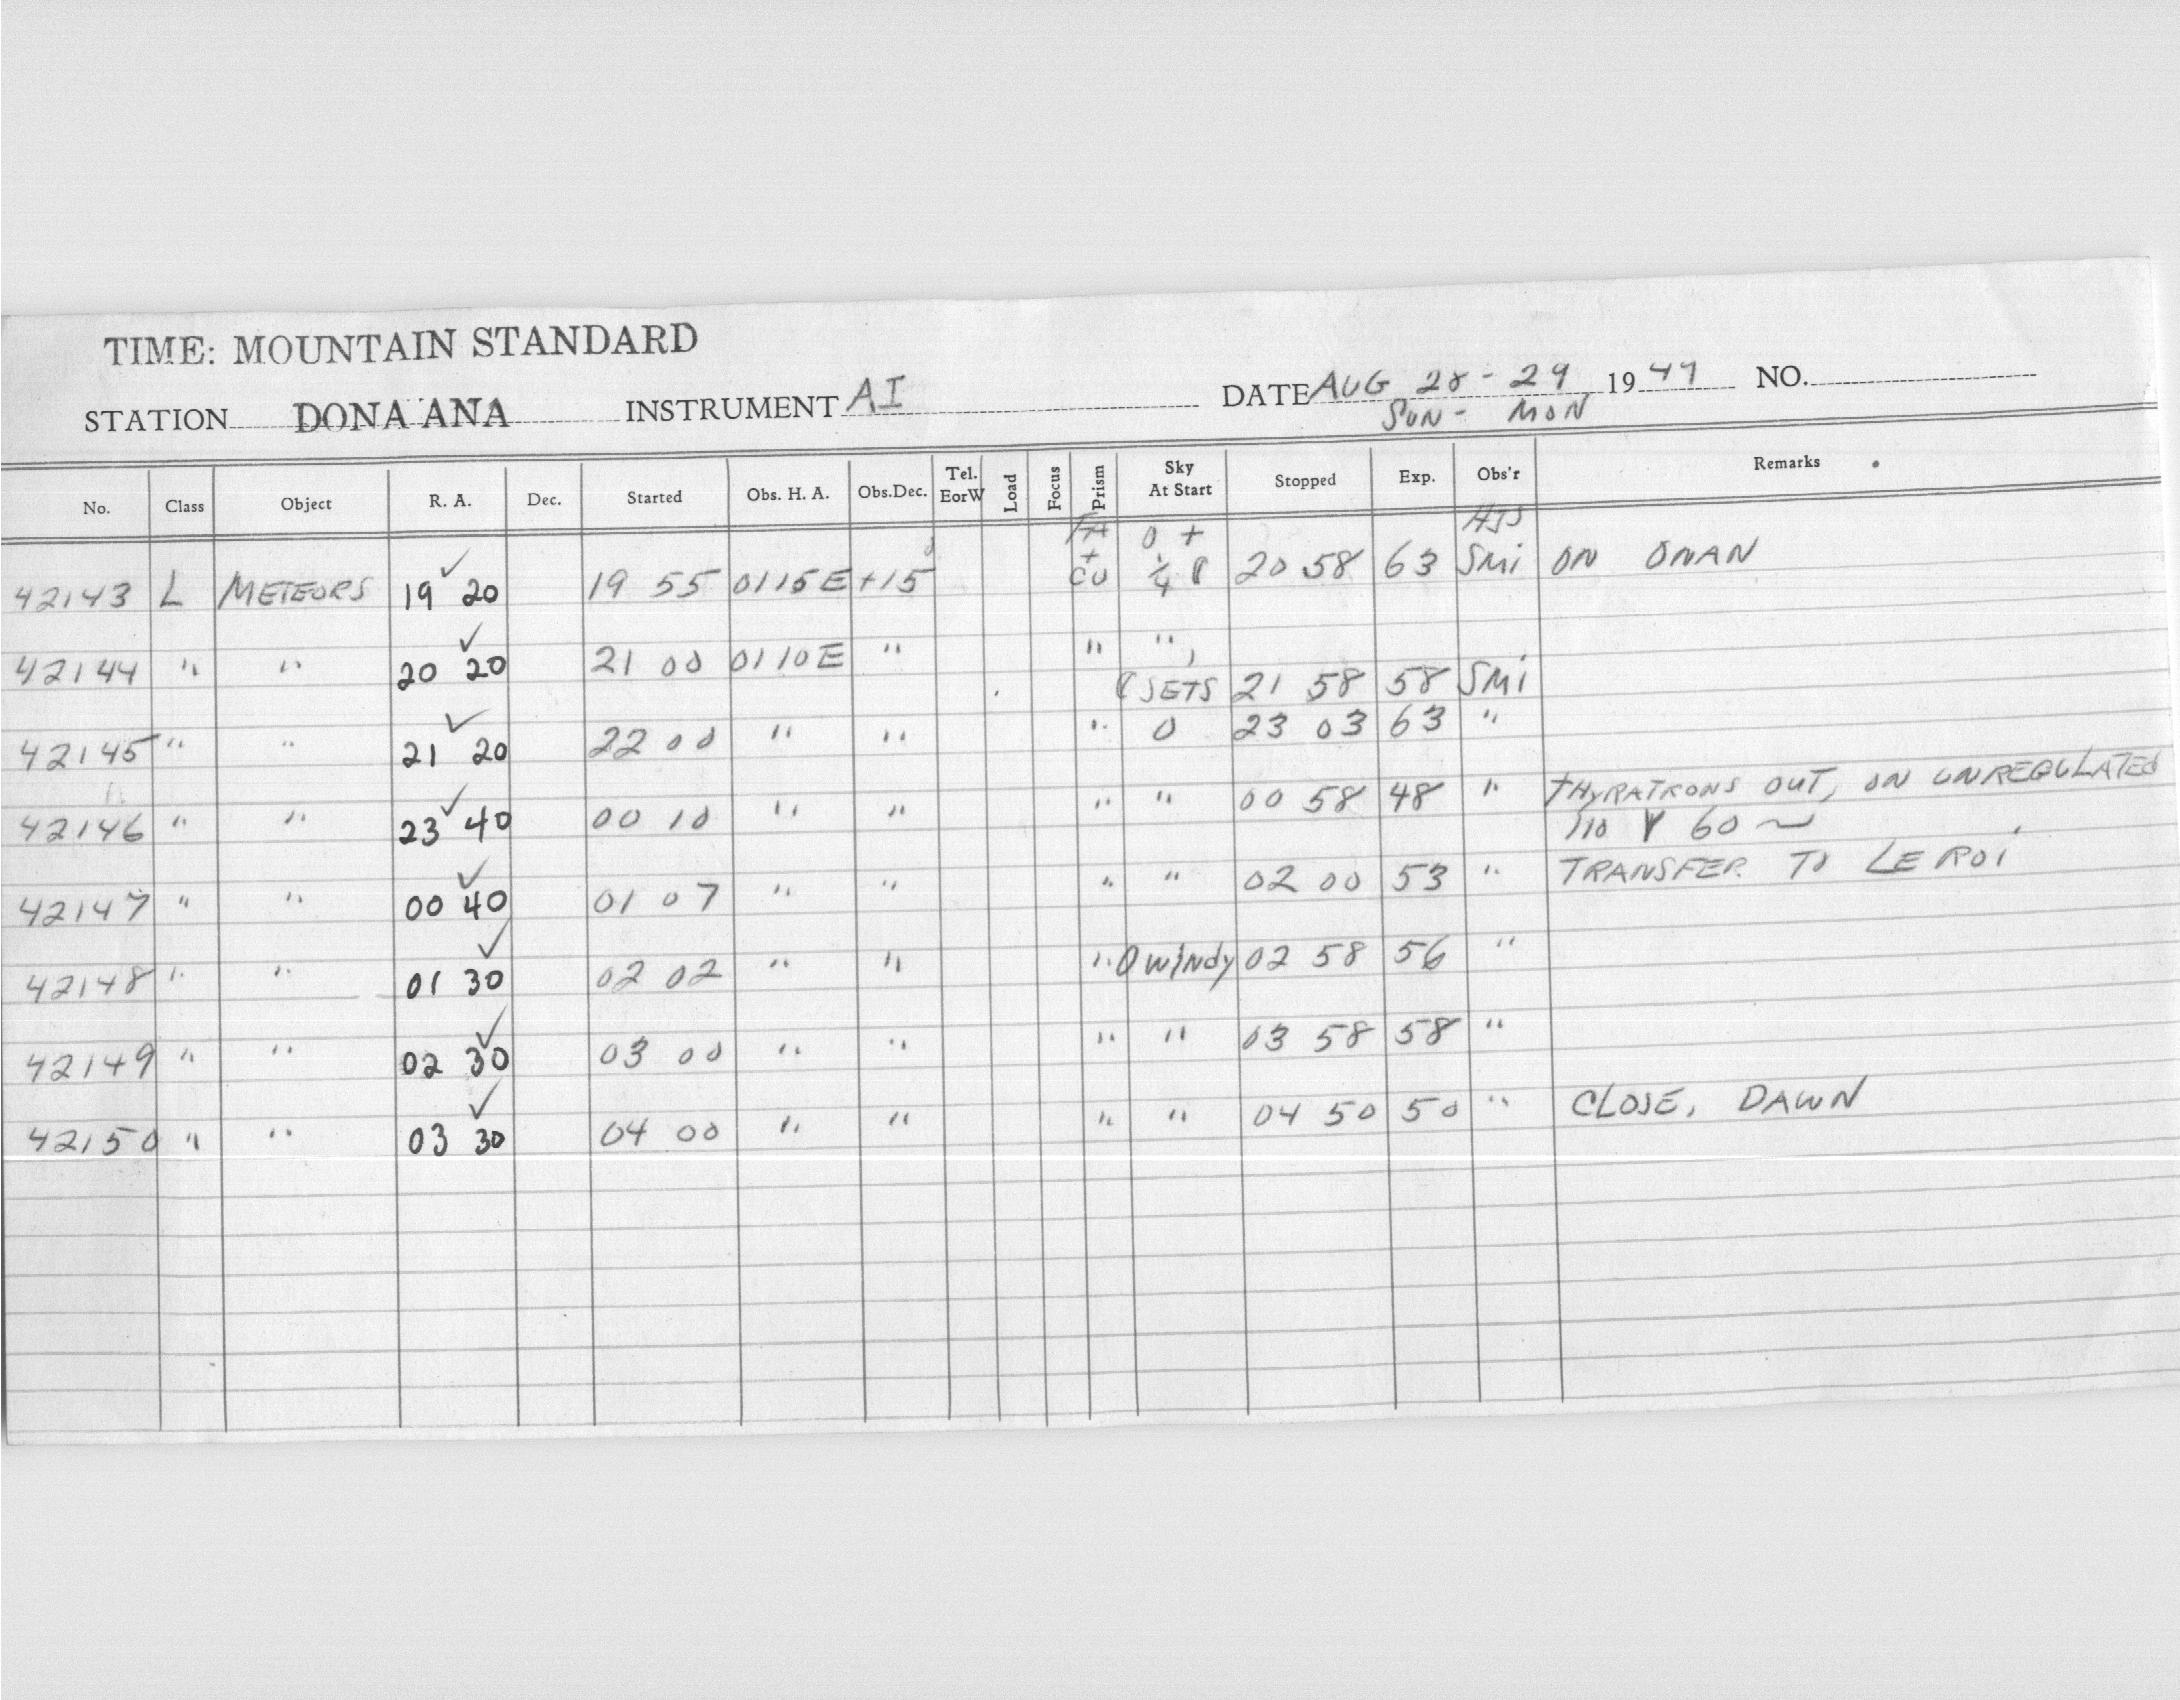 TIME: MOUNTAIN STANDARD
STATION DONA ANA INSTRUMENT AI DATE AUG 28 - 29 1949 NO.
SUN - MON
No. Class Object R. A. Dec. Started Obs. H. A. Obs.Dec. Tel. EorW Load Focus Prism Sky At Start Stopped Exp. Obs'r Remarks
42143 L METEORS 19 20 ✓ 19 55 0115 E +15° + CU 0 + 20 58 63 HJS SMi ON ONAN
42144 " " 20 20 ✓ 21 00 0110 E " " ", SETS 21 58 58 SMi
42145 " " 21 20 ✓ 22 00 " " " 0 23 03 63 "
42146 " " 23 40 ✓ 00 10 " " " " 00 58 48 " THYRATRONS OUT, ON UNREGULATED
110 V 60 ~
42147 " " 00 40 ✓ 01 07 " " " " 02 00 53 " TRANSFER TO LE ROi
42148 " " 01 30 ✓ 02 02 " " " 0 WINDY 02 58 56 "
42149 " " 02 30 ✓ 03 00 " " " " 03 58 58 "
42150 " " 03 30 ✓ 04 00 " " " " 04 50 50 " CLOSE, DAWN